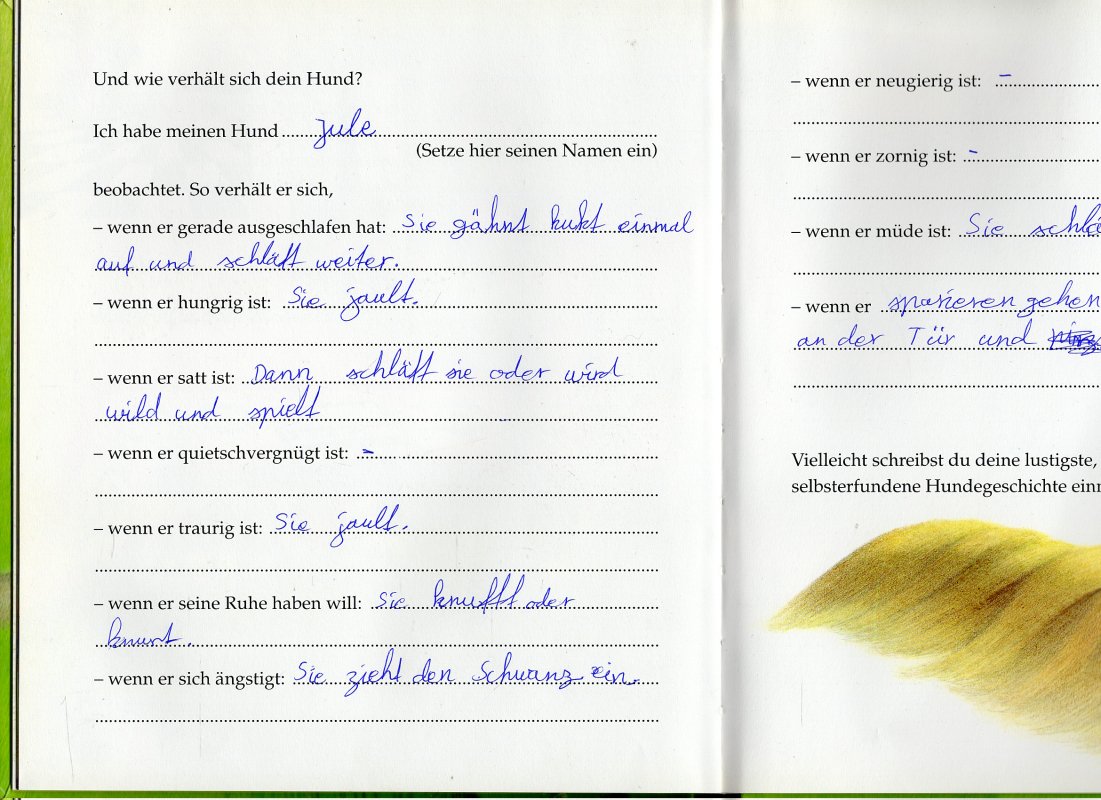 Und wie verhält sich dein Hund?
Ich habe meinen Hund Jule
(Setze hier seinen Namen ein)
beobachtet. So verhält er sich,
– wenn er gerade ausgeschlafen hat: Sie gähnt kukt einmal
auf und schläft weiter.
– wenn er hungrig ist: Sie jault.
– wenn er satt ist: Dann schläft sie oder wird
wild und spielt
– wenn er quietschvergnügt ist: -
– wenn er traurig ist: Sie jault.
– wenn er seine Ruhe haben will: Sie knufft oder
knurt.
– wenn er sich ängstigt: Sie zieht den Schwanz ein.
– wenn er neugierig ist: -
– wenn er zornig ist: -
– wenn er müde ist: Sie schlä
– wenn er spazieren gehen
an der Tür und
Vielleicht schreibst du deine lustigste,
selbsterfundene Hundegeschichte